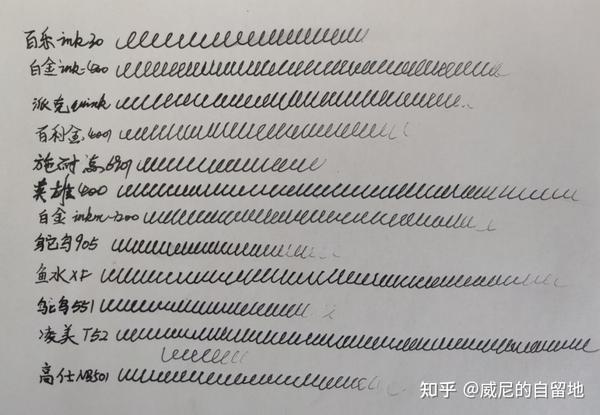 百乐ink30
白金ink-400
派克quink
百利金4001
施耐德6909
英雄400
白金inkm-1200
鸵鸟905
鱼水XF
鸵鸟551
凌美T52
高仕NB501
知乎 @威尼的自留地